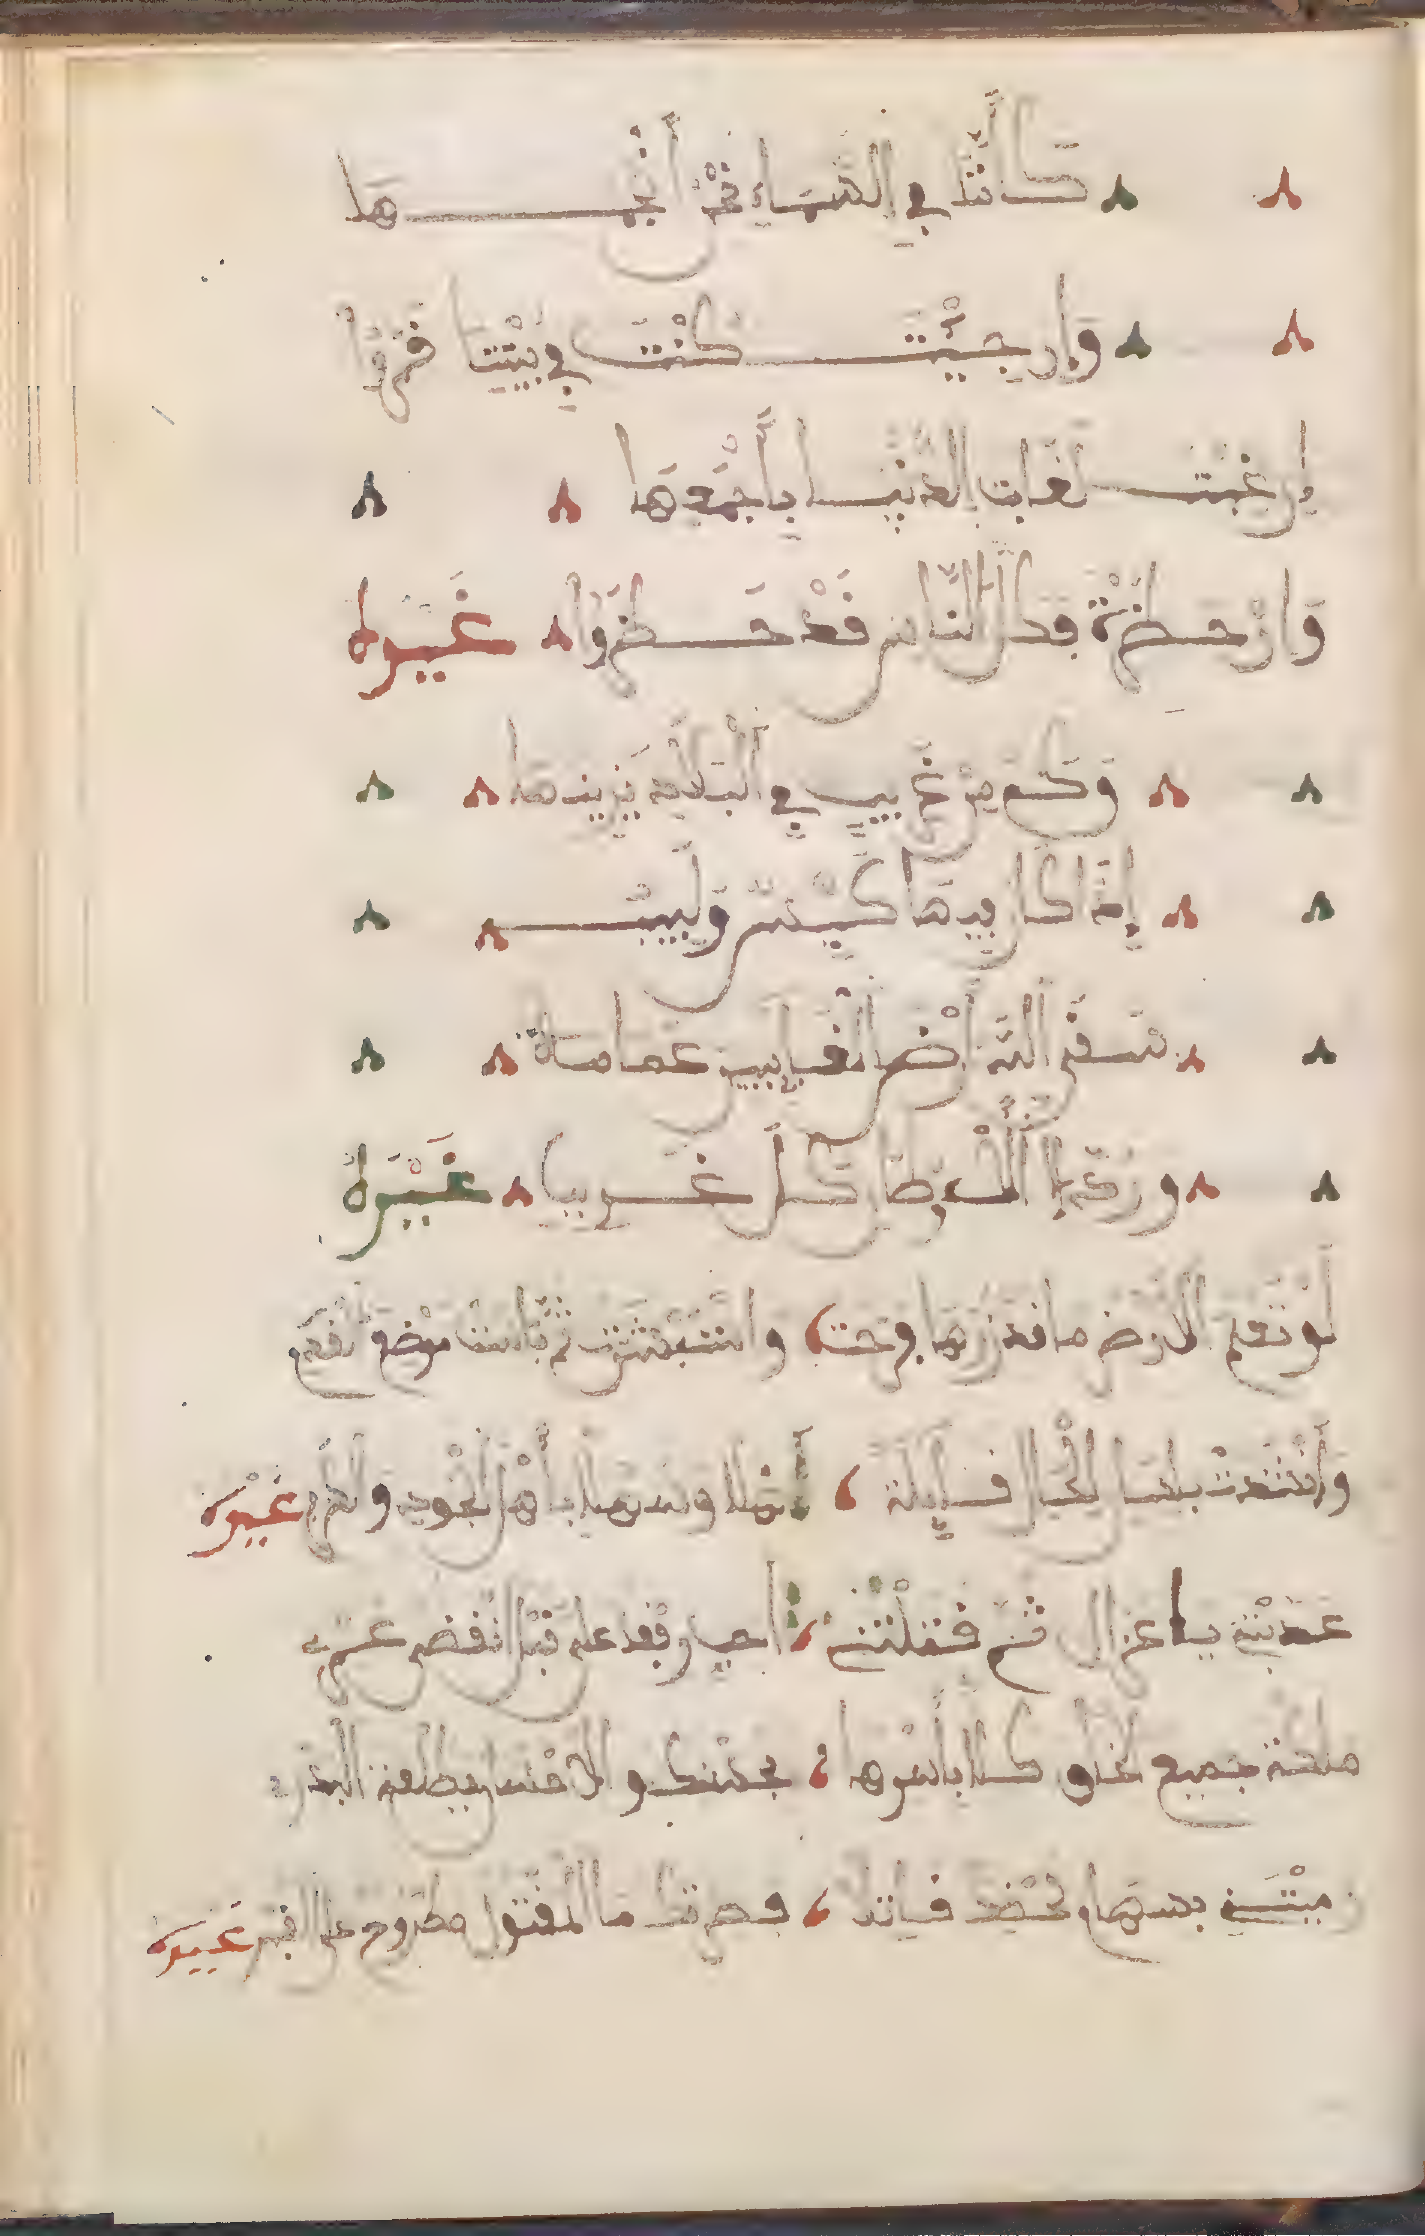 كَأَنَّنَا فِي السَّمَاءِ نَحْنُ أَنْجُمُهَا
وَإِن جِيْتَ كُنْتَ فِي بَيْتِنَا قَمَرُ
إِن غِبْتَ لَغَابَتِ الدُّنْيَا بِأَجْمَعِهَا
وَإِنْ حَضَرْتَ فَكُلُّ النَّاسِ قَدْ حَضَرُوا غَيْرُه
وَكَمْ مِنْ غَرِيبٍ فِي الْبَلَادِ يَزِينُهَا
إِذَا كَانَ فِيهَا كَيِّسٌ وَلَبِيبُ
سَقَى اللَّهُ أَرْضَ الْغَايِبِينَ غَمَامَةً
وَرَدَّ إِلَى الْأَوْطَانِ كُلَّ غَرِيبِ غَيْرُهُ
لَوْ تَعْلَمِ الْأَرْضُ مَا قَدْ زَارَهَا فَرِحَتْ وَاسْتَبْشَرَتْ ثُمَّ بَاسَتْ مَوْضِعَ الْقَدَمِ
وَأَنْشَدَتْ بِلِسَانِ الْحَالِ قَايِلَةً أَهْلًا وَسَهْلًا بِأَهْلِ الْجُودِ وَالْكَرَمِ غَيْرُه
عَذَّبْتَنِي يَا غَزَال ثُمَّ قَتَلْتَنِي قَبْلَ انْقَضَى عُمْرِي
مَلَكْتَ جَمِيعَ الْخَلْقِ كُلًّا بِأَسْرِهَا الْبَدْرِ
رَمَيْتَنِي بِسِهَامٍ لَحْظُكَ قَاتِلٌ الْمَقْتُول مَطْرُوح عَلَى الْقَبْرِ غَيْرُه